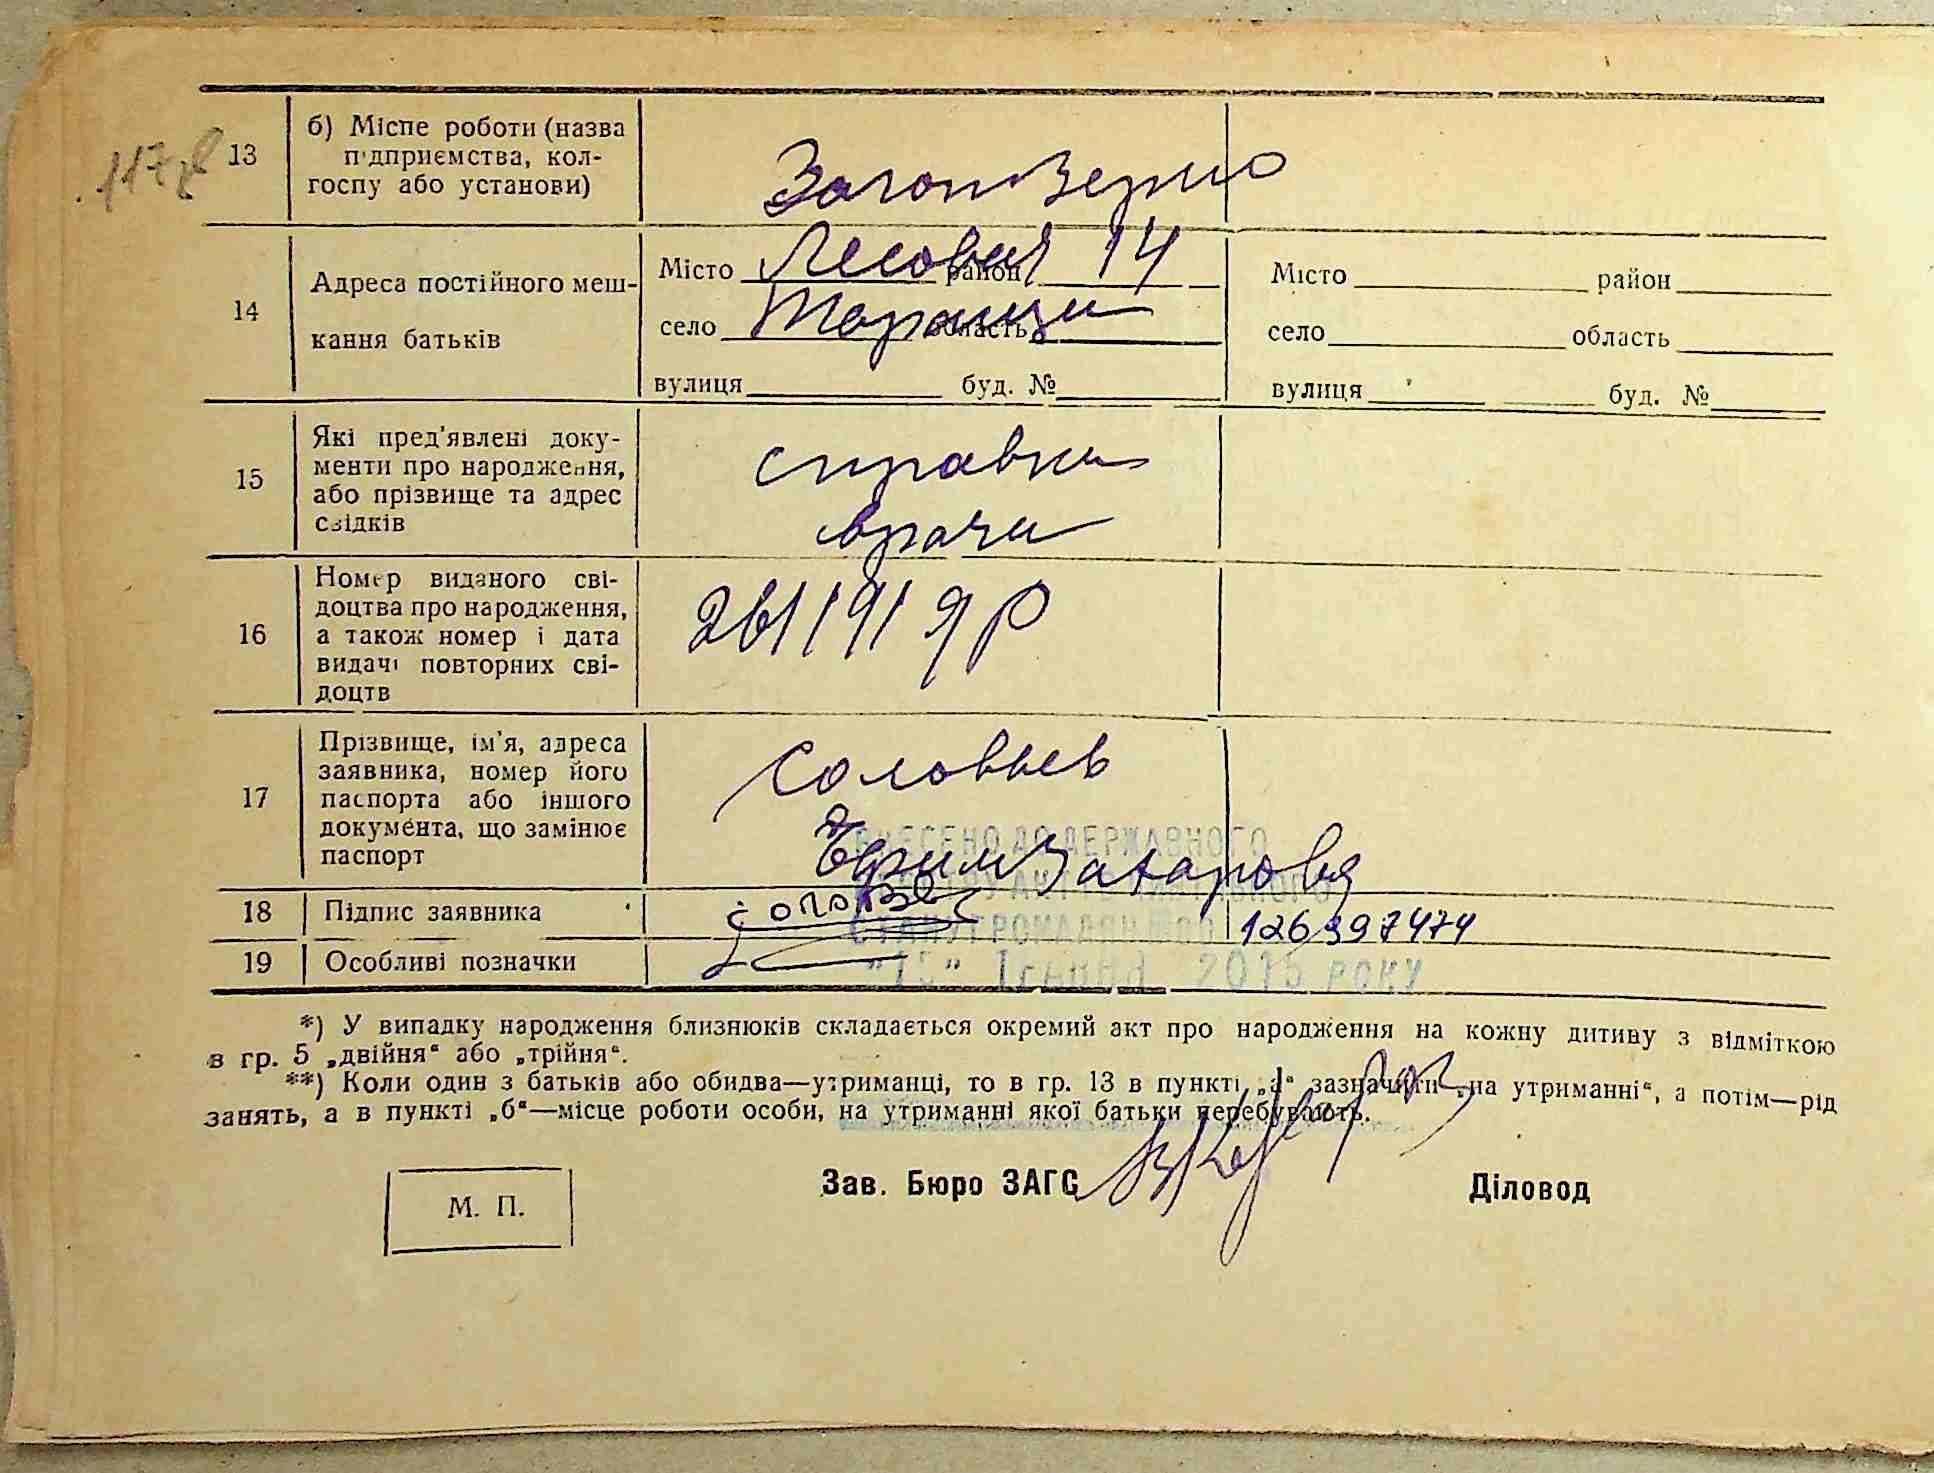 117
13 б) Місце роботи (назва
підприємства, кол-
госпу або установи)
Заготзерно
14 Адреса постійного меш-
кання батьків
Місто Лесовая район 14
село Таращи область
вулиця буд. №
Місто район
село область
вулиця буд. №
15 Які пред'явлені доку-
менти про народження,
або прізвище та адрес
свідків
справка
врача
16 Номер виданого сві-
доцтва про народження,
а також номер і дата
видачі повторних сві-
доцтв
17 Прізвище, ім'я, адреса
заявника, номер його
паспорта або іншого
документа, що замінює
паспорт
Соловьев
Ефим Захарова
ВНЕСЕНО ДО ДЕРЖАВНОГО
РЕЄСТРУ АКТІВ ЦИВІЛЬНОГО
СТАНУ ГРОМАДЯН ЗА
18 Підпис заявника
126397474
19 Особливі позначки
"15" Травня 2015 РОКУ
*) У випадку народження близнюків складається окремий акт про народження на кожну дитину з відміткою
в гр. 5 „двійня" або „трійня".
**) Коли один з батьків або обидва—утриманці, то в гр. 13 в пункті „а" зазначити „на утриманні", а потім—рід
занять, а в пункті „б"—місце роботи особи, на утриманні якої батьки перебувають.
М. П.
Зав. Бюро ЗАГС
Діловод